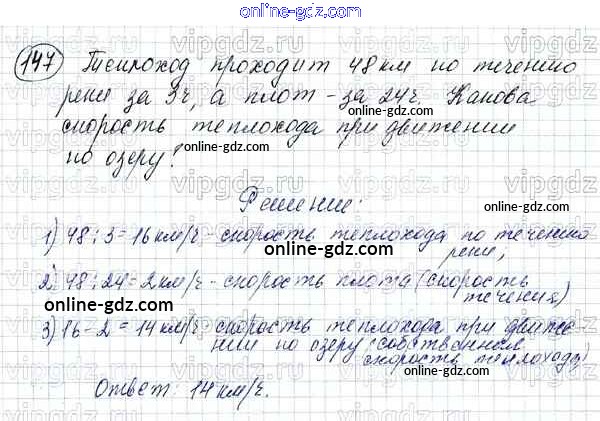 online-gdz.com
147 Теплоход проходит 48 км по течению
реки за 3ч, а плот - за 24ч. Какова
online-gdz.com
скорость теплохода при движении
online-gdz.com
по озеру?
Решение:
1) 48:3=16 км/ч - скорость теплохода по течению
реки;
online-gdz.com
2) 48:24=2 км/ч - скорость плота (скорость
течения)
online-gdz.com
3) 16-2=14 км/ч скорость теплохода при движе-
нии по озеру (собственная
скорость теплохода)
online-gdz.com
Ответ: 14 км/ч.
online-gdz.com